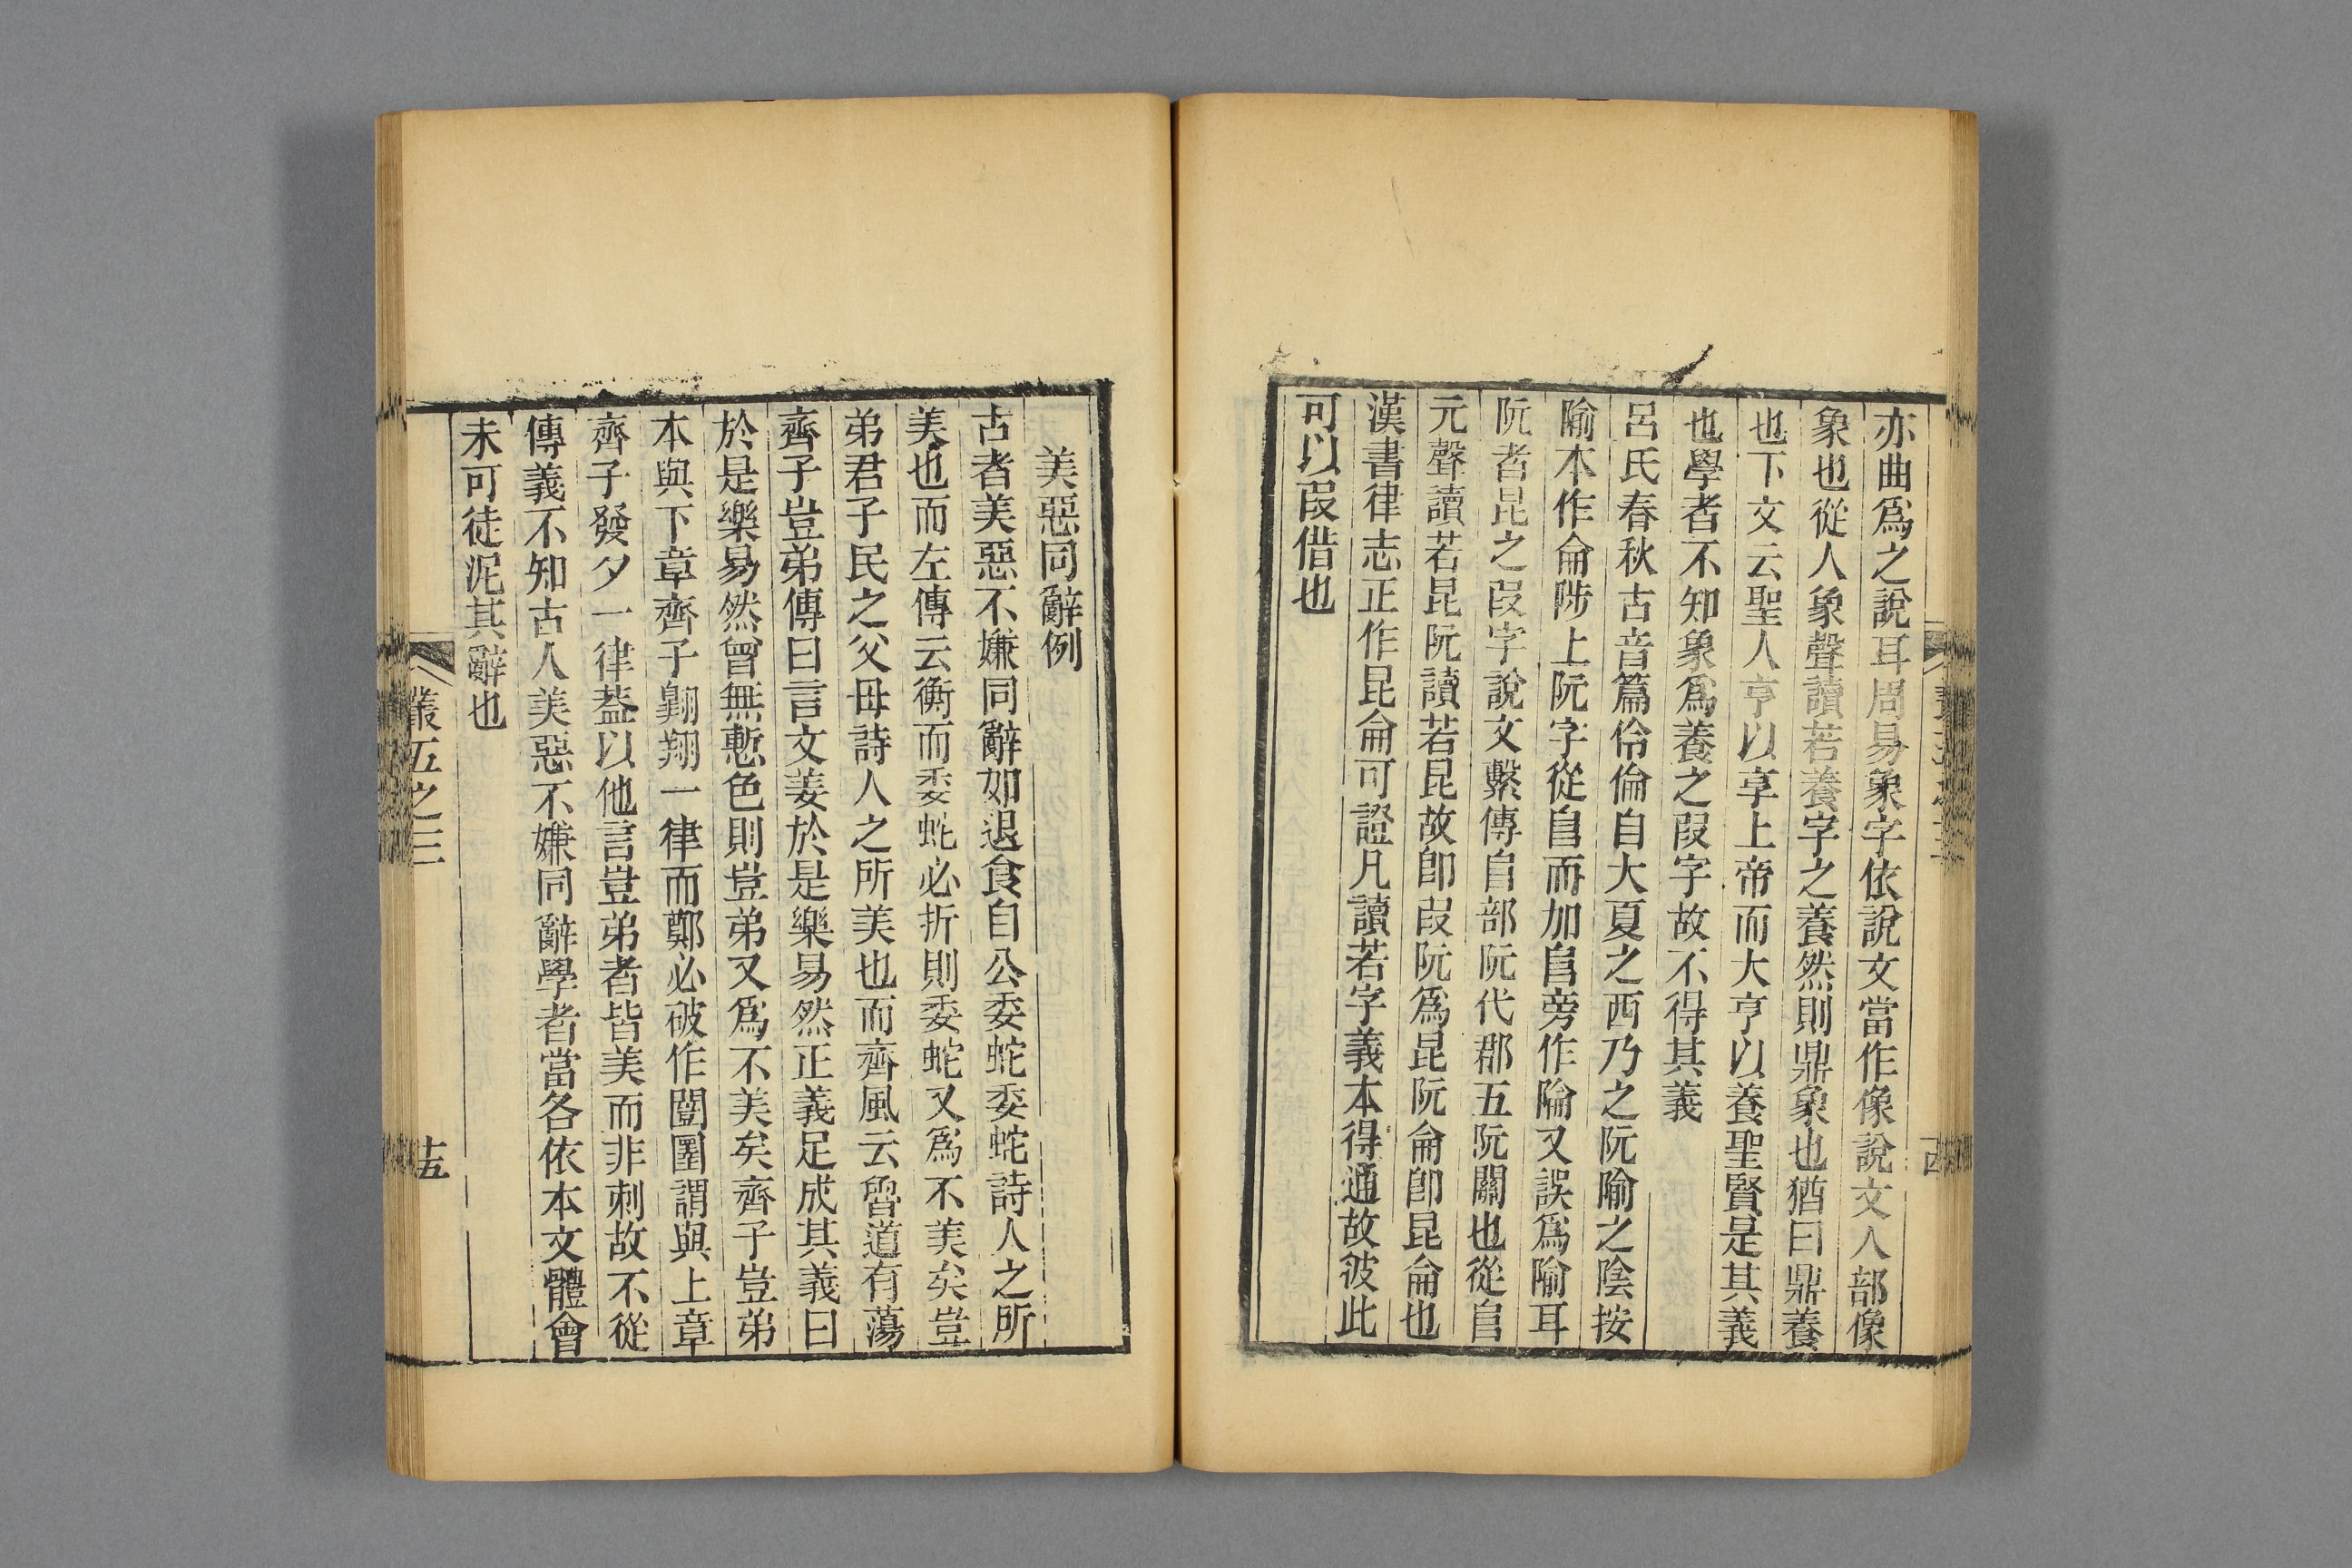 亦曲爲之說耳周易象字依說文當作像說文人部像
象也從人象聲讀若養字之養然則鼎象也猶曰鼎養
也下文云聖人亨以享上帝而大亨以養聖賢是其義
也學者不知象爲養之叚字故不得其義
呂氏春秋古音篇伶倫自大夏之西乃之阮隃之陰按
隃本作侖陟上阮字從𨸏而加𨸏旁作陯又誤爲隃耳
阮者昆之叚字說文繫傳𨸏部阮代郡五阮關也從𨸏
元聲讀若昆阮讀若昆故卽叚阮爲昆阮侖卽昆侖也
漢書律志正作昆侖可證凡讀若字義本得通故彼此
可以叚借也
美惡同辭例
古者美惡不嫌同辭如退食自公委蛇委蛇詩人之所
美也而左傳云衡而委蛇必折則委蛇又爲不美矣豈
弟君子民之父母詩人之所美也而齊風云魯道有蕩
齊子豈弟傳曰言文姜於是樂易然正義足成其義曰
於是樂易然曾無慙色則豈弟又爲不美矣齊子豈弟
本與下章齊子翺翔一律而鄭必破作闓圛謂與上章
齊子發夕一律葢以他言豈弟者皆美而非刺故不從
傳義不知古人美惡不嫌同辭學者當各依本文體會
未可徒泥其辭也
叢五之三
十五